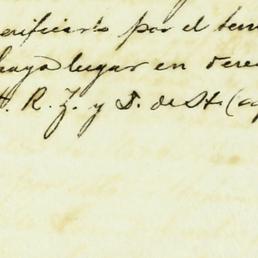 verificarlo por el ter
haya lugar en dere
R. Z. y S. de St.